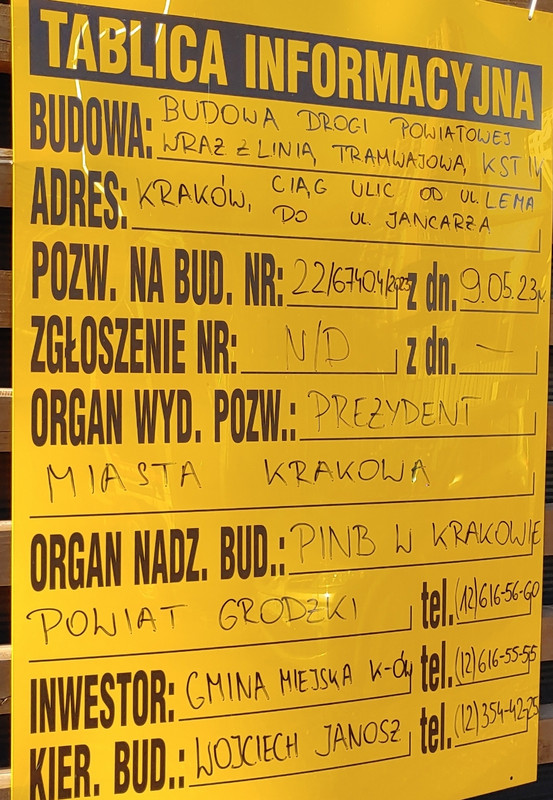 TABLICA INFORMACYJNA
BUDOWA: BUDOWA DROGI POWIATOWEJ
WRAZ Z LINIĄ TRAMWAJOWĄ KST IV
ADRES: KRAKÓW, CIĄG ULIC OD UL. LEMA
DO UL. JANCARZA
POZW. NA BUD. NR: 22/6740.4/2023 z dn. 9.05.23r.
ZGŁOSZENIE NR: N/D z dn. —
ORGAN WYD. POZW.: PREZYDENT
MIASTA KRAKOWA
ORGAN NADZ. BUD.: PINB W KRAKOWIE
POWIAT GRODZKI tel. (12)616-56-60
INWESTOR: GMINA MIEJSKA K-ÓW tel. (12)616-55-55
KIER. BUD.: WOJCIECH JANOSZ tel. (12)354-42-25